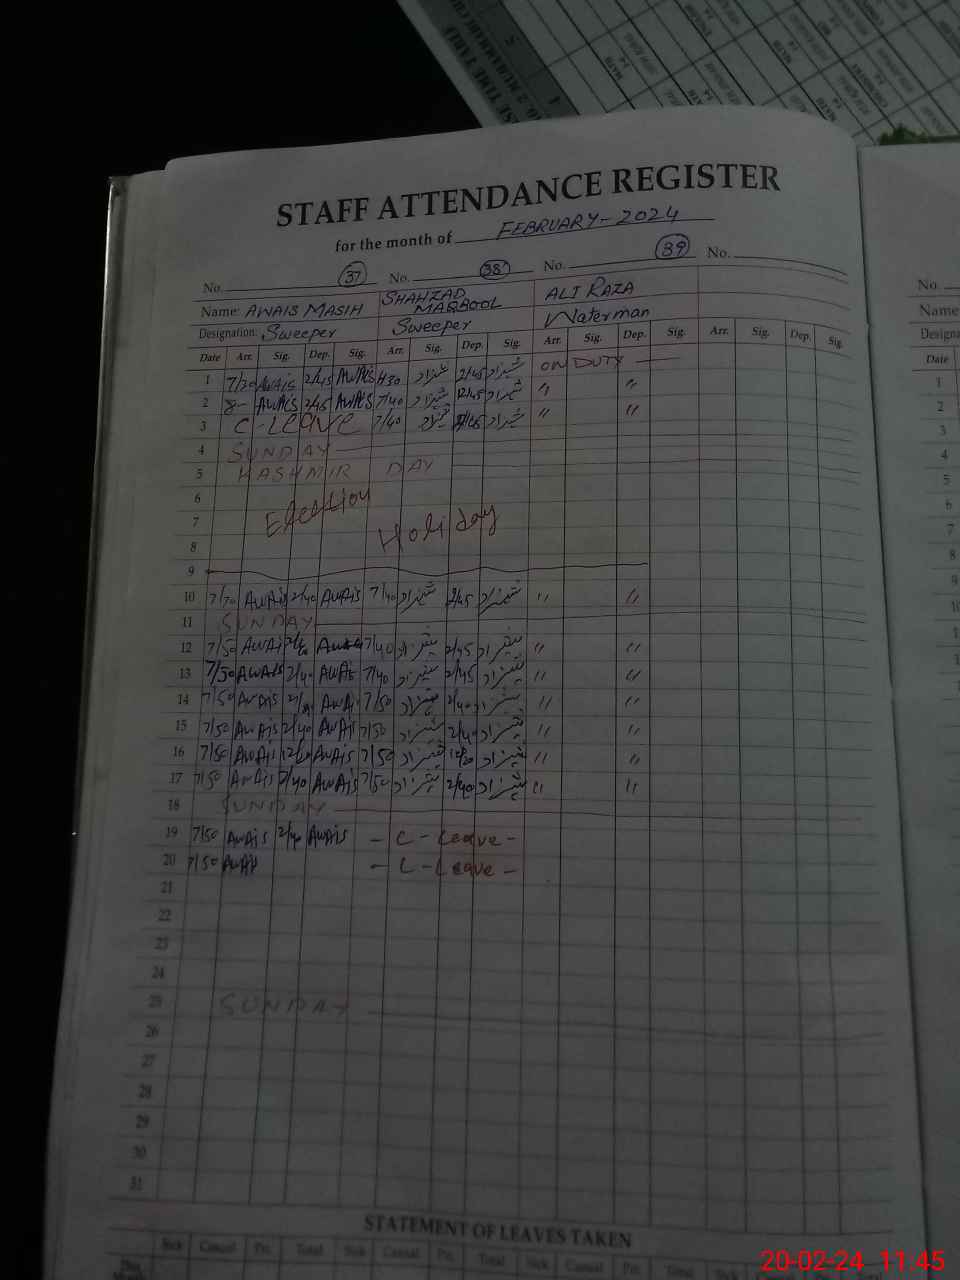 STAFF ATTENDANCE REGISTER
for the month of FEBRUARY-2024
No. 37 No. 38 No. 39 No.
Name: AWAIS MASIH SHAHZAD MAQBOOL ALI RAZA
Designation: Sweeper Sweeper Waterman
Date Arr. Sig. Dep. Sig. Arr. Sig. Dep. Sig. Arr. Sig. Dep. Sig. Arr. Sig. Dep. Sig.
1 AWAIS 2/45 AWAIS شہزاد 2/45 شہزاد ON DUTY
2 8- AWAIS 2/45 AWAIS 7/40 شہزاد 2/45 شہزاد " "
3 C-Leave 7/40 شہزاد شہزاد " "
4 SUNDAY
5 KASHMIR DAY
6
Election
7
Holiday
8
9
10 AWAIS 2/40 AWAIS 7/40 شہزاد 2/45 شہزاد " "
11 SUNDAY
12 7/50 AWAIS 7/40 شہزاد 2/45 شہزاد " "
13 7/50 AWAIS 2/40 AWAIS 7/40 شہزاد 2/45 شہزاد " "
14 7/50 AWAIS AWAIS 7/50 شہزاد 2/40 شہزاد " "
15 7/50 AWAIS 2/40 AWAIS 7/50 شہزاد 2/40 شہزاد " "
16 7/50 AWAIS AWAIS 7/50 شہزاد شہزاد " "
17 7/50 AWAIS 2/40 AWAIS 7/50 شہزاد 2/40 شہزاد " "
18 SUNDAY
19 7/50 AWAIS 2/40 AWAIS - C-Leave -
20 7/50 AWAIS - C-Leave -
21
22
23
24
25 SUNDAY
26
27
28
29
30
31
STATEMENT OF LEAVES TAKEN
Sick Casual Pri. Total Sick Casual Pri. Total Sick Casual Pri. Total Sick
No.
Name
Designa
Date
1
2
3
4
5
6
7
8
9
10
11
12
13
20-02-24 11:45